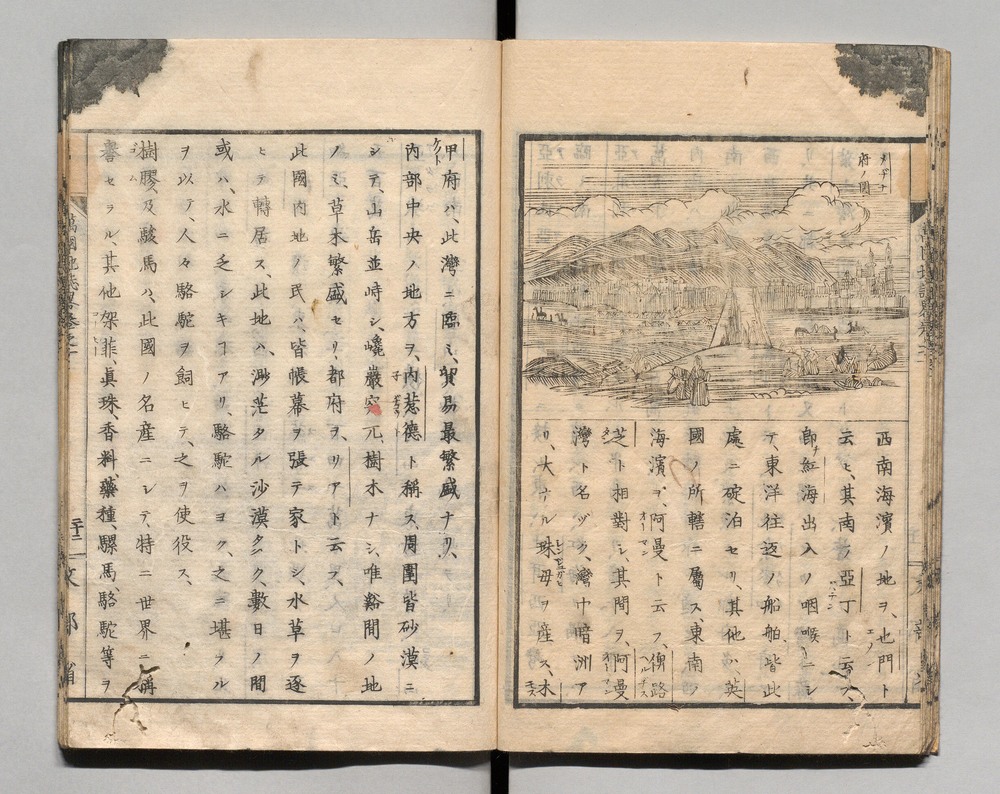 メヂナ
府ノ圖
西南海濱ノ地ヲ、也門ト
云ヒ、其南ノ亞丁ト云フ、
即チ紅海出入ノ咽喉ニシ
テ、東洋往返ノ船舶皆此
處ニ碇泊セリ、其他ハ英
國ノ所轄ニ屬ス、東南ノ
海濱ヲ、阿曼ト云フ、俾路
芝ト相對シ、其間ヲ、阿曼
灣ト名ヅク、灣中暗洲ア
リ、大ナル珠母ヲ産ス、木
甲府ハ、此灣ニ臨ミ、貿易最繁盛ナリ、
内部中央ノ地方ヲ、内惹德ト稱ス、周圍皆砂漠ニ
シテ、山岳並峙シ、巉巖突兀、樹木ナシ、唯谿間ノ地
ノミ、草木繁盛セリ、都府ヲ、リアト云フ、
此國内地ノ民ハ、皆帳幕ヲ張テ家トシ、水草ヲ逐
ヒテ轉居ス、此地ハ、渺茫タル沙漠多ク、數日ノ間
或ハ、水ニ乏シキヿアリ、駱駝ハヨク、之ニ堪フル
ヲ以テ、人々駱駝ヲ飼ヒテ、之ヲ使役ス、
樹膠、及駿馬ハ、此國ノ名産ニシテ、特ニ世界ニ稱
譽セラル、其他架菲、眞珠、香料藥種、騾馬、駱駝等ヲ
萬國地誌畧卷之二
三十二
文部省